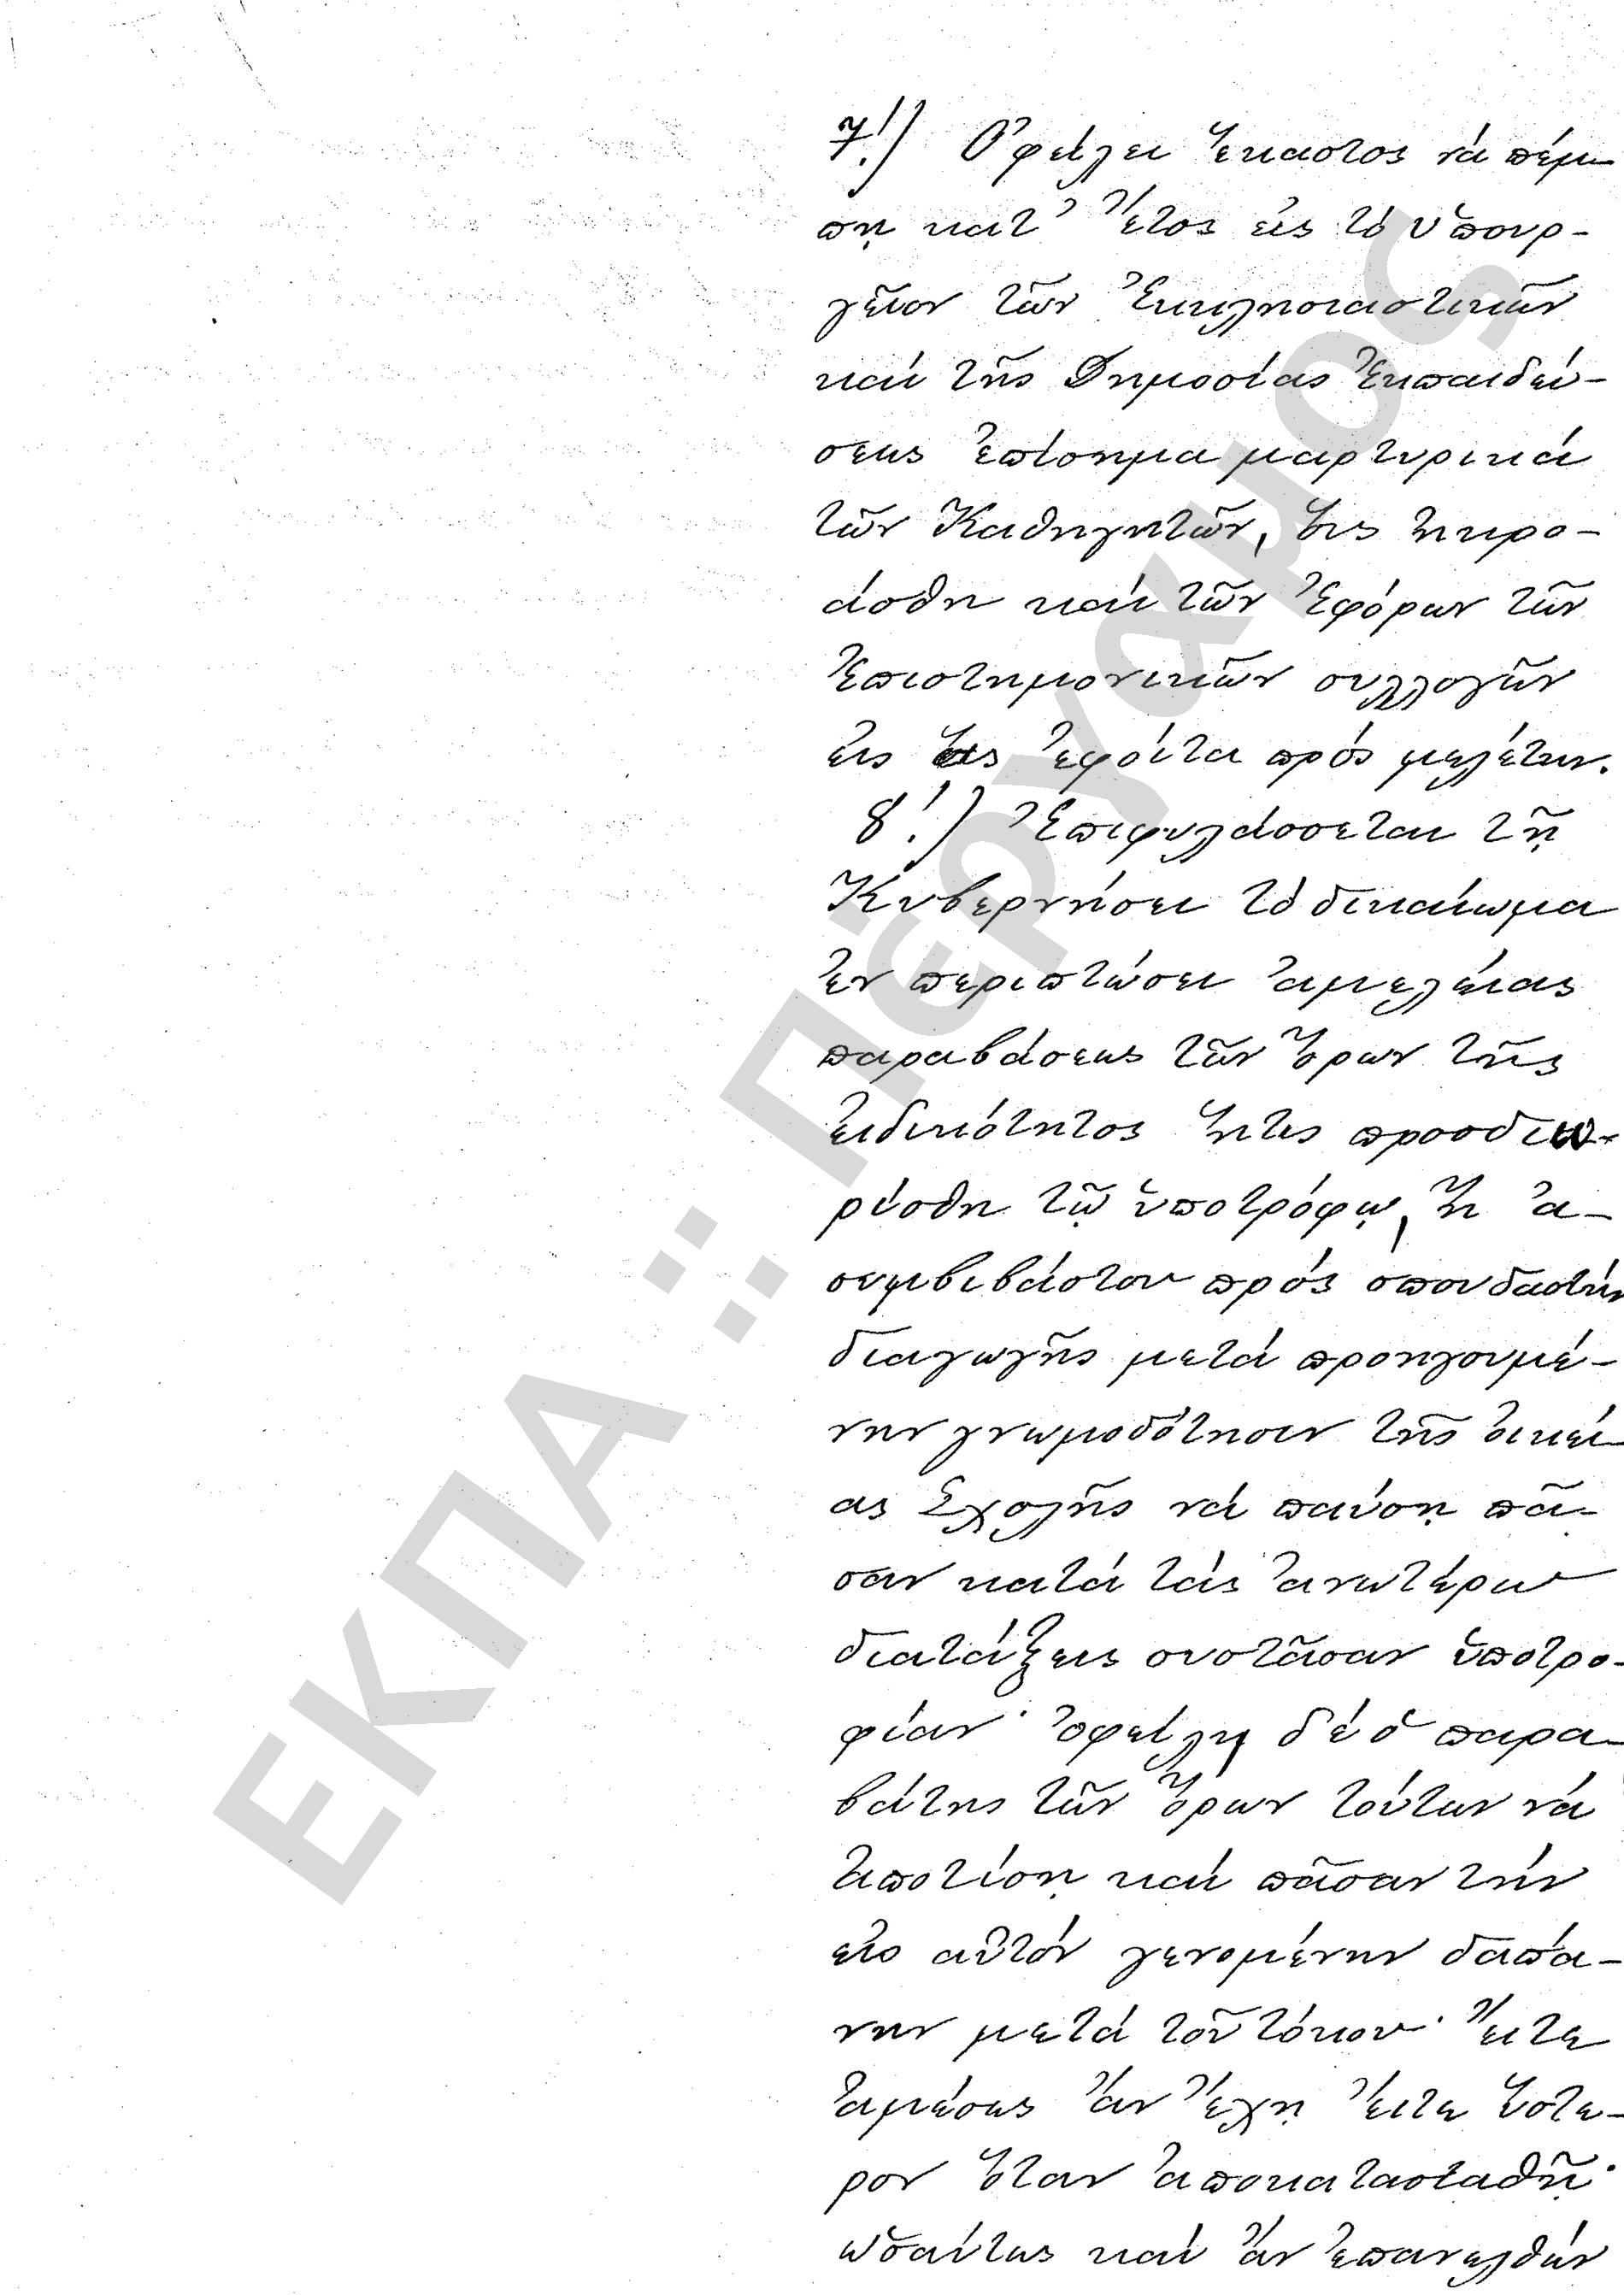 7!) Ὀφείλει ἕκαστος νά πέμ-
πῃ κατ' ἔτος εἰς τό ὑπουρ-
γεῖον τῶν Ἐκκλησιαστικῶν
καί τῆς Δημοσίας Ἐκπαιδεύ-
σεως ἐπίσημα μαρτυρικά
τῶν Καθηγητῶν, ὧν ἠκρο-
άσθη καί τῶν Ἐφόρων τῶν
Ἐπιστημονικῶν συλλογῶν
εἰς ἅς ἐφοίτα πρός μελέτην.
8!) Ἐπιφυλάσσεται τῇ
Κυβερνήσει τό δικαίωμα
ἐν περιπτώσει ἀμελείας
παραβάσεως τῶν ὅρων τῆς
εἰδικότητος ἥτις προσδιω-
ρίσθη τῷ ὑποτρόφῳ, ἤ ἀ-
συμβιβάστου πρός σπουδαστήν
διαγωγῆς μετά προηγουμέ-
νην γνωμοδότησιν τῆς οἰκεί-
ας Σχολῆς νά παύσῃ πᾶ-
σαν κατά τάς ἀνωτέρω
διατάξεις συστᾶσαν ὑποτρο-
φίαν· ὀφείλη δέ ὁ παρα-
βάτης τῶν ὅρων τούτων νά
ἀποτίσῃ καί πᾶσαν τήν
εἰς αὐτόν γενομένην δαπά-
νην μετά τοῦ τόκου· εἴτε
ἀμέσως ἄν ἔχῃ εἴτε ὕστε-
ρον ὅταν ἀποκατασταθῇ·
ὡσαύτως καί ἄν ἐπανελθών
ΕΚΠΑ :: Πέργαμος